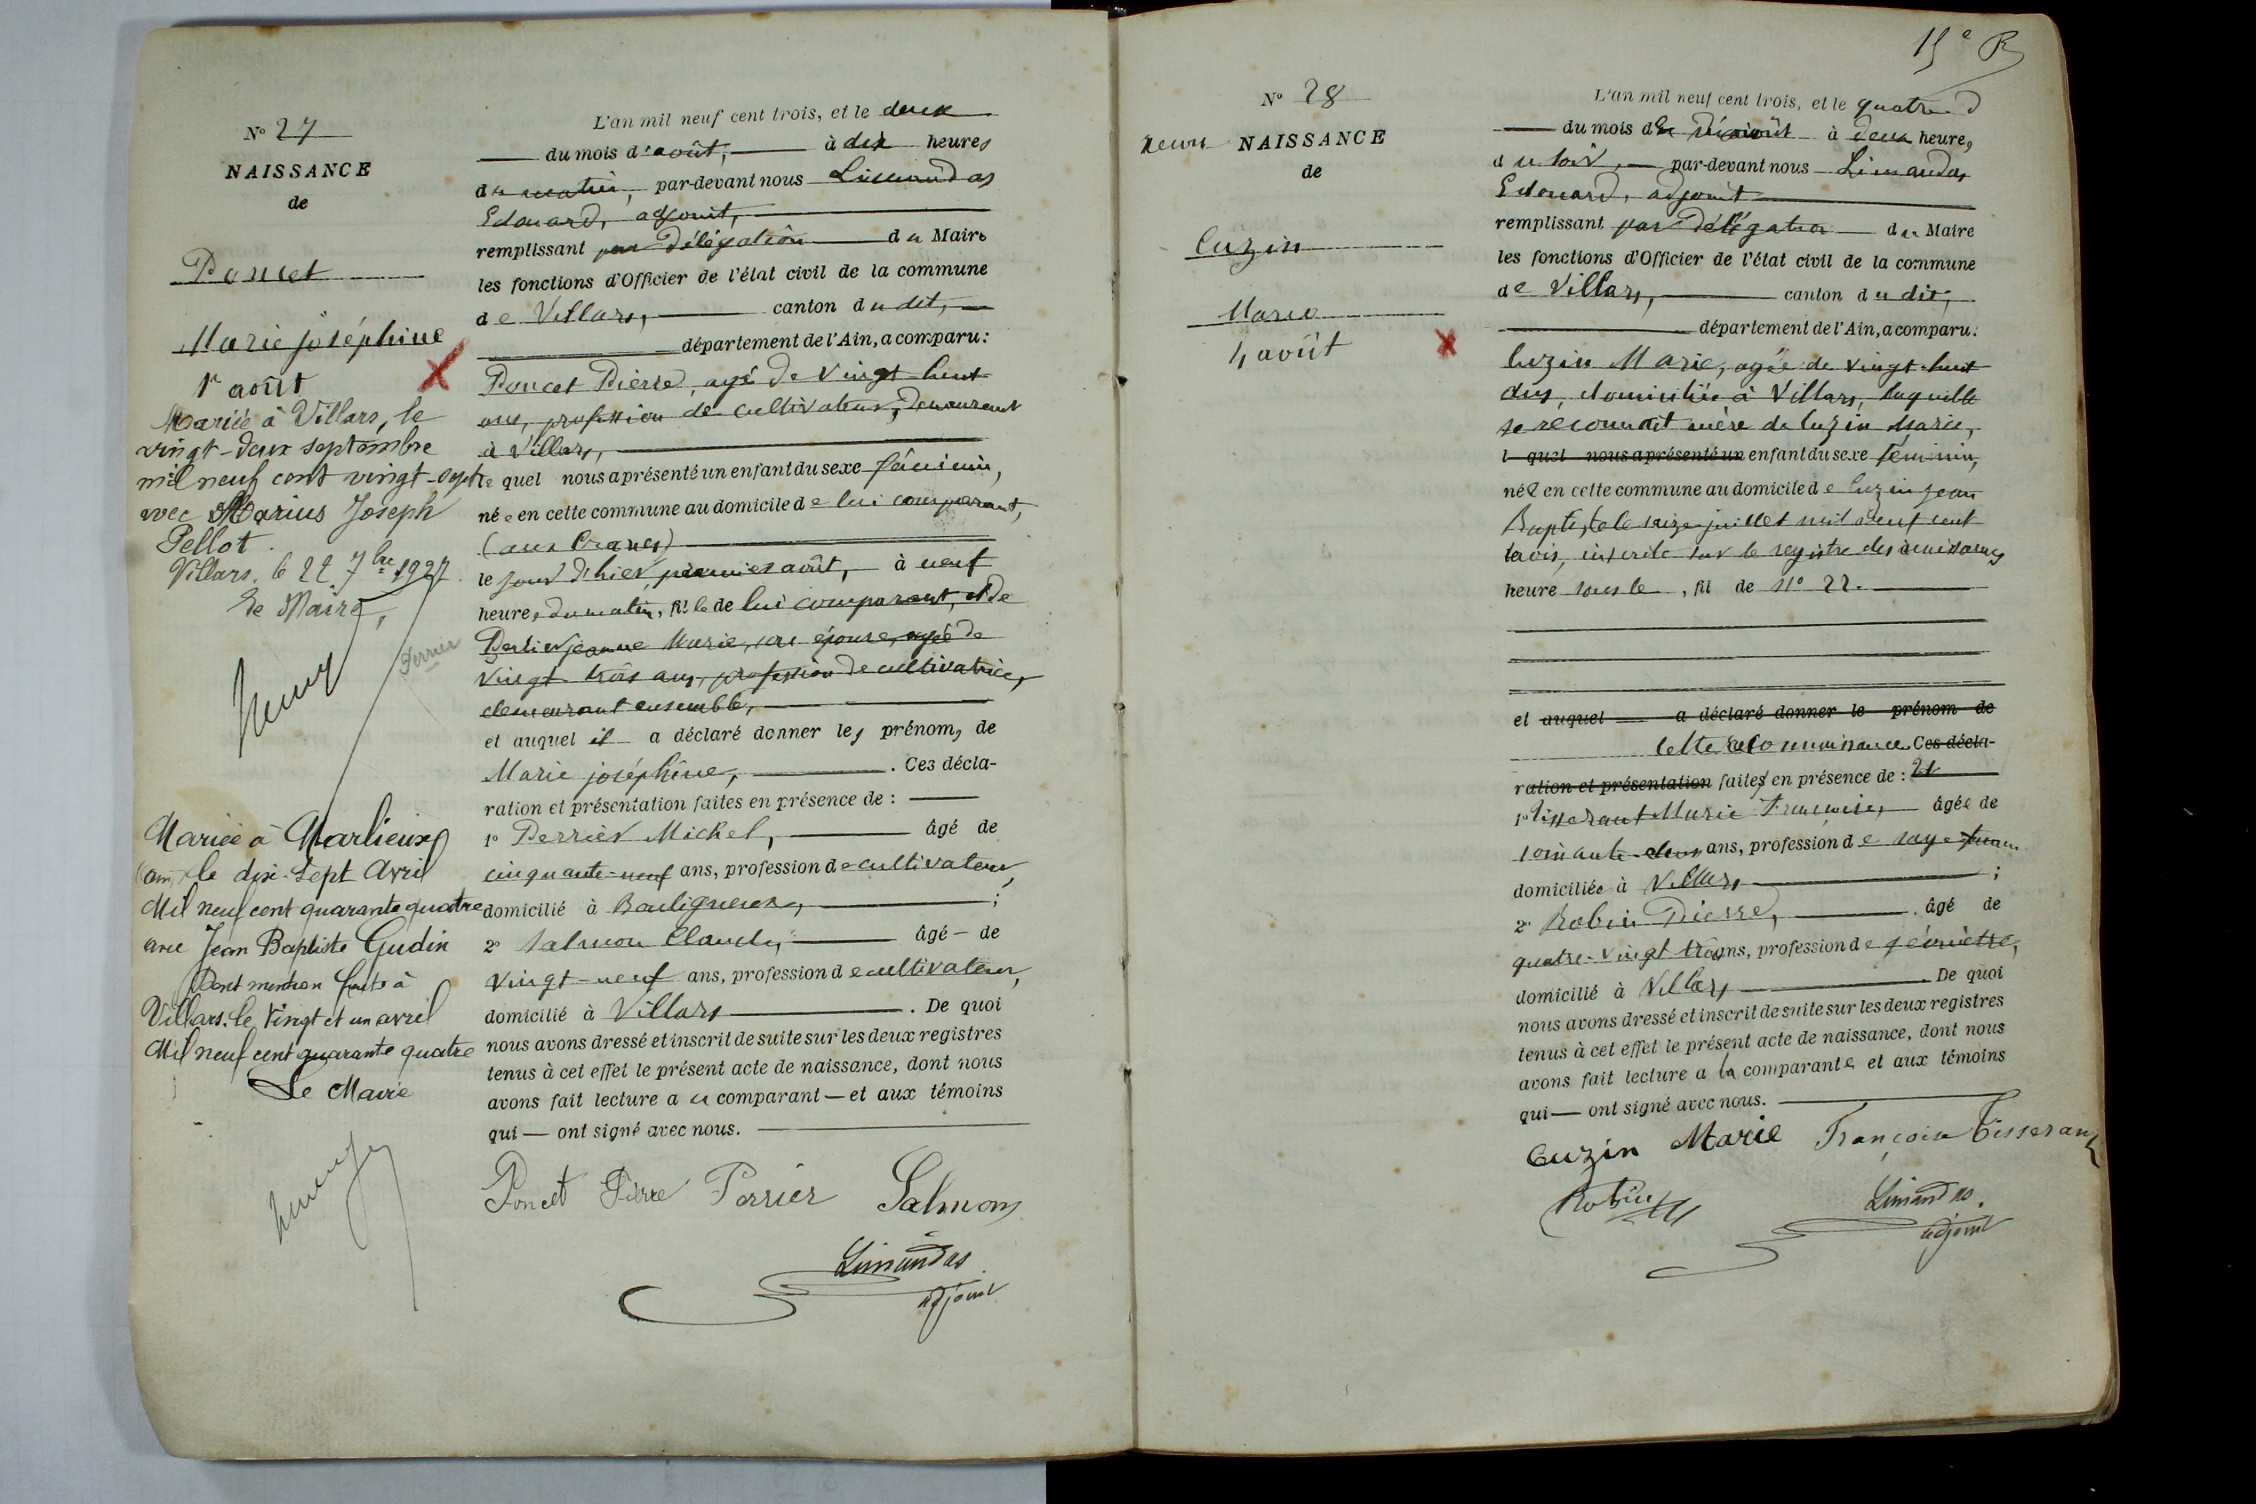 Nº 27
NAISSANCE
de
Poncet
Marie joséphine
1r août
Mariée à Villars, le
vingt-deux septembre
mil neuf cent vingt-sept
avec Marius Joseph
Pellot.
Villars, le 22 7bre 1927.
Le Maire,
Perrier
Mariée à Marlieux
(Ain) le dix-sept Avril
Mil neuf cent quarante quatre
avec Jean Baptiste Gudin
Dont mention faite à
Villars, le vingt et un avril
Mil neuf cent quarante quatre
Le Maire
L'an mil neuf cent trois, et le deux
du mois d'août, à dix heures
du matin, par-devant nous Limandas
Edouard, adjoint,
remplissant par délégation du Maire
les fonctions d'Officier de l'état civil de la commune
de Villars, canton dudit,
département de l'Ain, a comparu:
Poncet Pierre, agé de vingt-huit
ans, profession de cultivateur, demeurant
à Villars,
lequel nous a présenté un enfant du sexe féminin,
née en cette commune au domicile de lui comparant,
le jour d'hier, premier août, à neuf
heures du matin, fille de lui comparant, et de
Perrier jeanne Marie, son épouse, agée de
vingt trois ans, profession de cultivatrice,
demeurant ensemble,
et auquel il a déclaré donner les prénoms de
Marie joséphine, . Ces décla-
ration et présentation faites en présence de :
1º Perrier Michel, âgé de
cinquante-neuf ans, profession de cultivateur,
domicilié à Bouligneux, ;
2º Salmon Claude, âgé de
vingt-neuf ans, profession de cultivateur,
domicilié à Villars . De quoi
nous avons dressé et inscrit de suite sur les deux registres
tenus à cet effet le présent acte de naissance, dont nous
avons fait lecture au comparant et aux témoins
qui ont signé avec nous.
Poncet Pierre Perrier Salmon
Limandas
adjoint
15e R
Nº 28
NAISSANCE
de
Cuzin
Marie
4 août
L'an mil neuf cent trois, et le quatre
du mois d août à deux heures
du soir, par-devant nous Limandas
Edouard, adjoint
remplissant par délégation du Maire
les fonctions d'Officier de l'état civil de la commune
de Villars, canton dudit,
département de l'Ain, a comparu:
Cuzin Marie, agée de vingt-huit
ans, domiciliée à Villars, laquelle
se reconnaît mère de Cuzin Marie,
lquel nous a présenté un enfant du sexe féminin,
née en cette commune au domicile de Cuzin jean
Baptiste le seize juillet mil neuf cent
trois, inscrite sur le registre des naissances
heure sous le , fil de nº 22.
et auquel a déclaré donner le prénom de
Cette reconnaissance Ces décla-
ration et présentation faites en présence de :
1º Tisserant Marie Françoise, âgée de
soixante-deux ans, profession de sage-femme
domiciliée à Villars ;
2º Robin Pierre, âgé de
quatre-vingt trois ans, profession de géomètre,
domicilié à Villars . De quoi
nous avons dressé et inscrit de suite sur les deux registres
tenus à cet effet le présent acte de naissance, dont nous
avons fait lecture a la comparante et aux témoins
qui ont signé avec nous.
Cuzin Marie Françoise Tisserant
Robin
Limandas
adjoint